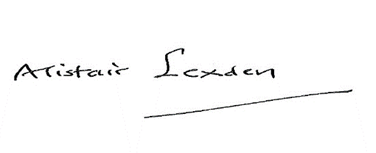 Alistair Lexden